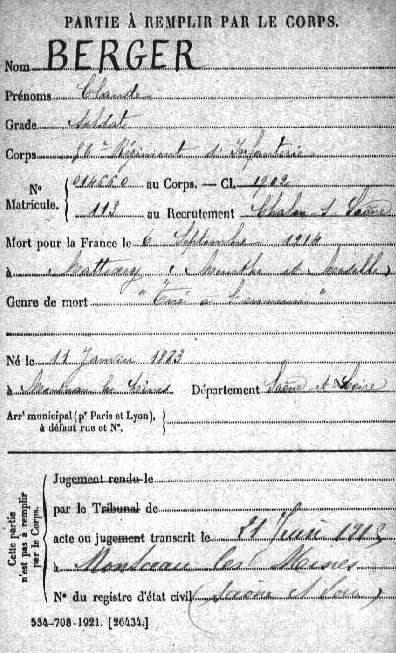 PARTIE À REMPLIR PAR LE CORPS.
Nom BERGER
Prénoms Claude
Grade Soldat
Corps Régiment d'Infanterie
N° Matricule. 014660 au Corps. — CL 1902
113 au Recrutement Chalon s/ Saône
Mort pour la France le 6 Septembre 1914
à (Meurthe et Moselle)
Genre de mort "Tué à l'ennemi"
Né le 11 Janvier 1883
à Montceau les Mines Département Saône et Loire
Arrt municipal (pr Paris et Lyon), à défaut rue et N°.
Cette partie n'est pas à remplir par le Corps.
Jugement rendu le
par le Tribunal de
acte ou jugement transcrit le 21 Juin 1915
à Montceau les Mines
N° du registre d'état civil (Saône et Loire)
534-708-1921. [26434.]